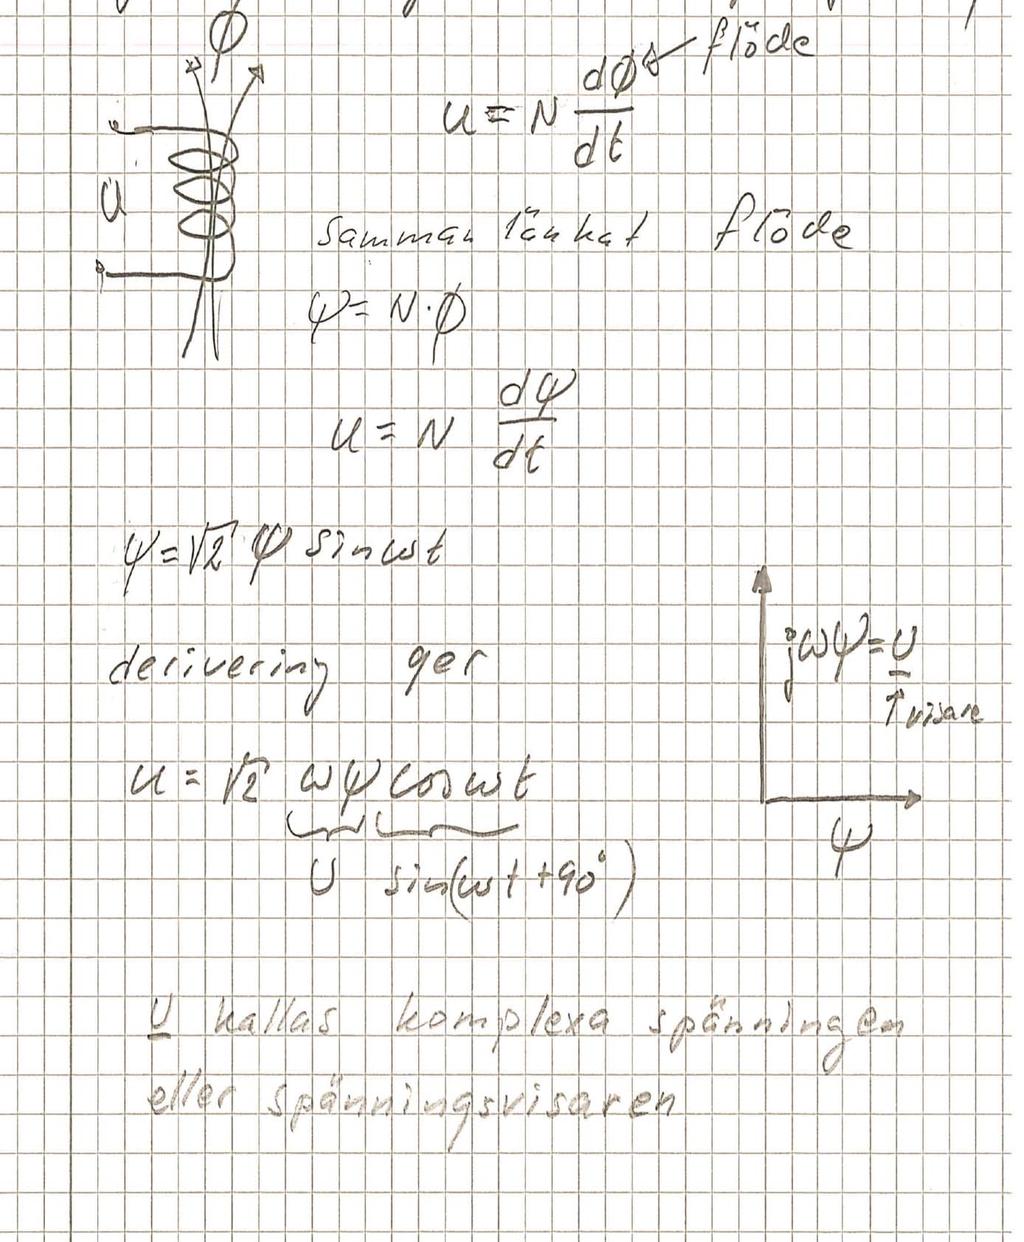 ϕ
u = N dϕ/dt ← flöde
U
sammanlänkat flöde
ψ = N·ϕ
u = N dψ/dt
ψ = √2 ψ sin ωt
derivering ger
jωψ = U
↑ visare
u = √2 ωψ cos ωt
ψ
U sin(ωt + 90°)
U kallas komplexa spänningen
eller spänningsvisaren